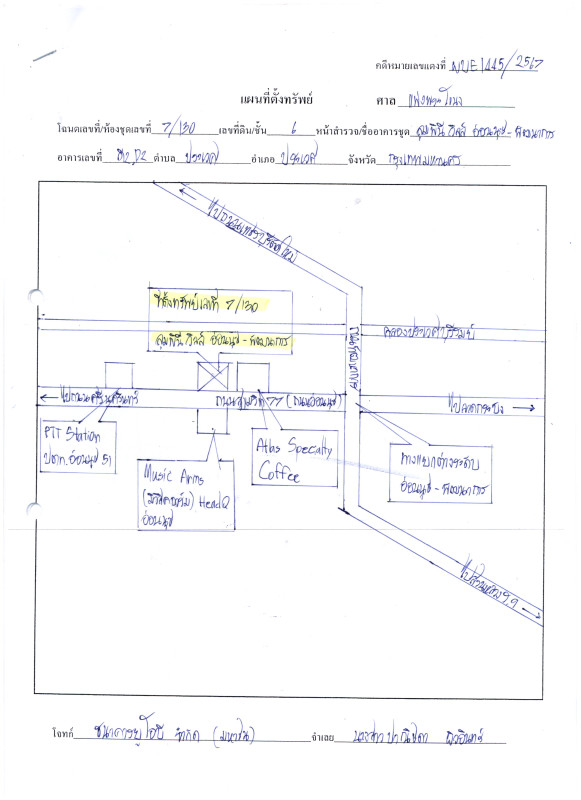 คดีหมายเลขแดงที่ ผบE1445/2567
แผนที่ตั้งทรัพย์ ศาล แพ่งพระโขนง
โฉนดเลขที่/ห้องชุดเลขที่ 7/130 เลขที่ดิน/ชั้น 6 หน้าสำรวจ/ชื่ออาคารชุด ลุมพินี วิลล์ อ่อนนุช - พัฒนาการ
อาคารเลขที่ D2 ตำบล ประเวศ อำเภอ ประเวศ จังหวัด กรุงเทพมหานคร
ไปถนนเพชรบุรีตัดใหม่
ที่ตั้งทรัพย์เลขที่ 7/130
ลุมพินี วิลล์ อ่อนนุช - พัฒนาการ
ถนนพัฒนาการ
คลองประเวศบุรีรมย์
ไปถนนศรีนครินทร์
ถนนสุขุมวิท 77 (ถนนอ่อนนุช)
ไปลาดกระบัง
PTT Station
ปตท. อ่อนนุช 51
Music Arms
(มิวสิคอาร์ม) HeadQ
อ่อนนุช
Atlas Specialty
Coffee
ทางแยกต่างระดับ
อ่อนนุช - พัฒนาการ
ไปสวนหลวง ร.9
โจทก์ ธนาคารยูโอบี จำกัด (มหาชน) จำเลย นางสาว